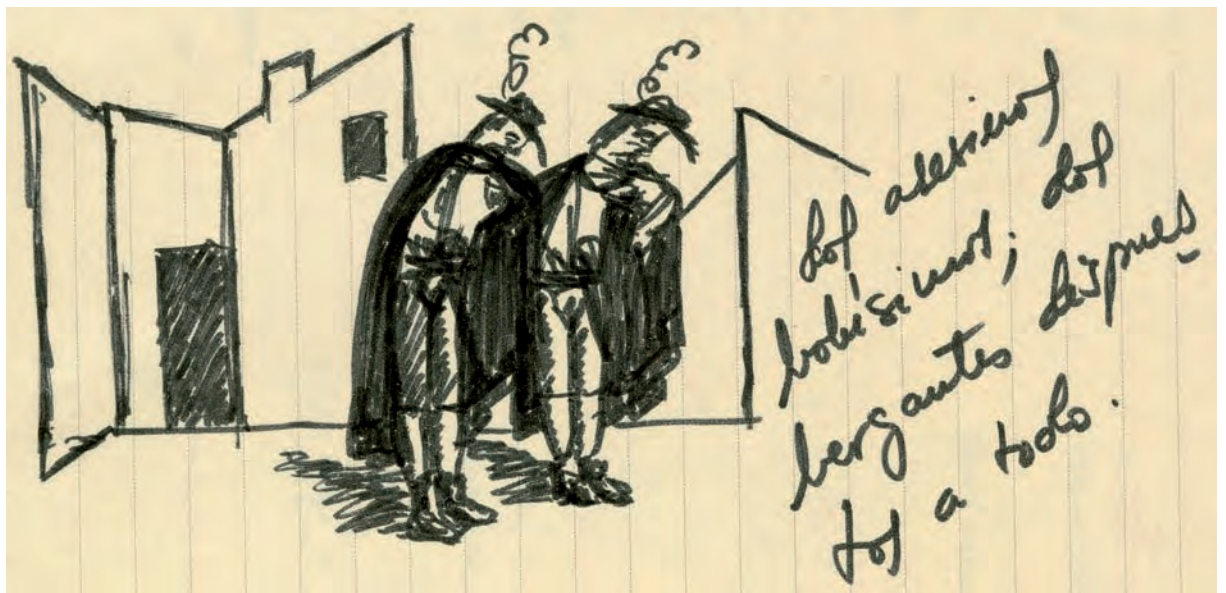 dos asesinos
bobísimos; dos
bergantes dispues
tos a todo.